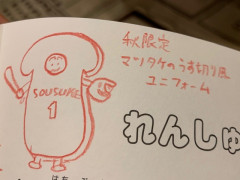 秋限定
マツタケのうす切り風
ユニフォーム
SOUSUKE
1
れんしゅ